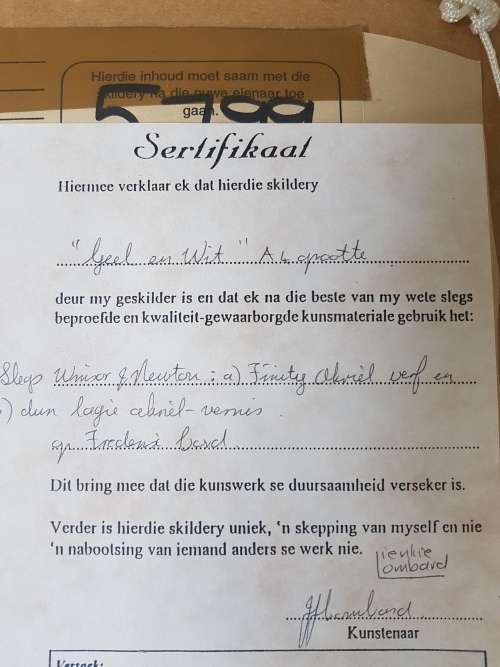 Hierdie inhoud moet saam met die
skildery na die nuwe eienaar toe
gaan.
5799
Sertifikaat
Hiermee verklaar ek dat hierdie skildery
"Geel en Wit" A4 grootte
deur my geskilder is en dat ek na die beste van my wete slegs
beproefde en kwaliteit-gewaarborgde kunsmateriale gebruik het:
Slegs Winsor & Newton: a) Finity Akriel verf en
) dun lagie akriel-vernis
op board
Dit bring mee dat die kunswerk se duursaamheid verseker is.
Verder is hierdie skildery uniek, 'n skepping van myself en nie
'n nabootsing van iemand anders se werk nie.
ienkie
ombard
Kunstenaar